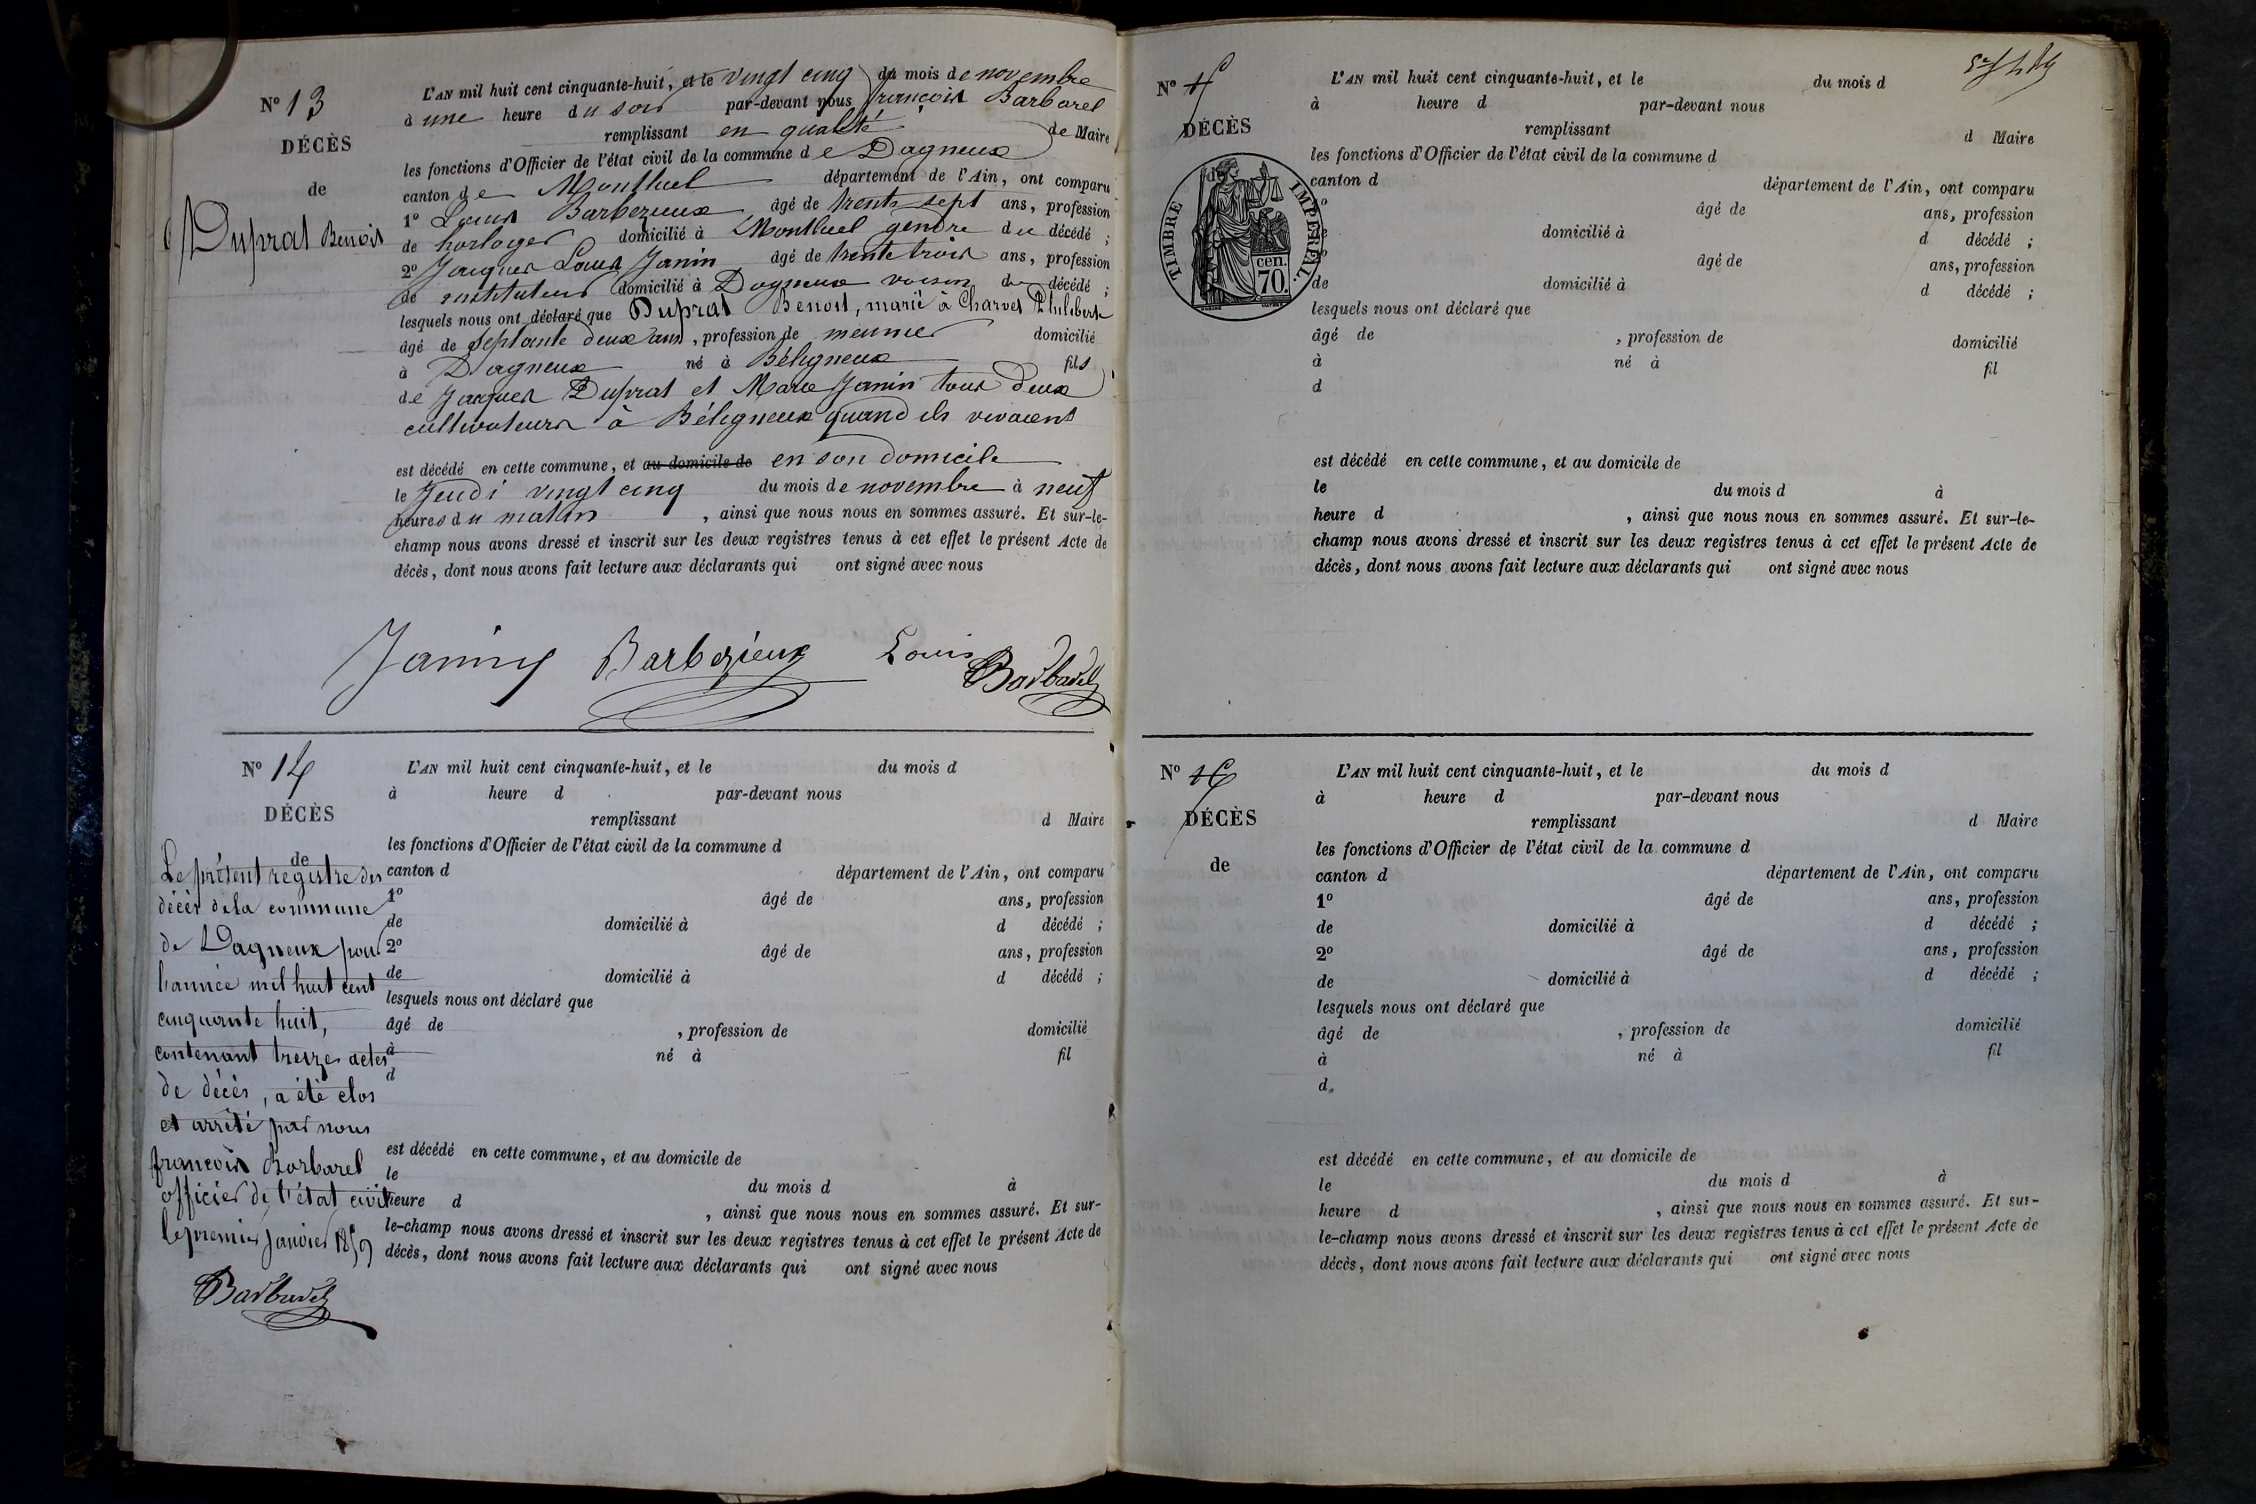 N° 13
DÉCÈS
de
Duprat Benoit
L'AN mil huit cent cinquante-huit, et le vingt cinq du mois de novembre
à une heure du soir par-devant nous françois Barbarel
remplissant en qualité de Maire
les fonctions d'Officier de l'état civil de la commune de Dagneux
canton de Montluel département de l'Ain, ont comparu
1° Louis Barbezieux âgé de trente sept ans, profession
de horloger domicilié à Montluel gendre du décédé ;
2° Jacques Louis Janin âgé de trente trois ans, profession
de instituteur domicilié à Dagneux voisin du décédé ;
lesquels nous ont déclaré que Duprat Benoit, marié à Charvet Philiberte
âgé de septante deux ans, profession de meunier domicilié
à Dagneux né à Béligneux fils
de Jacques Duprat et Marie Janin tous deux
cultivateurs à Béligneux quand ils vivaient
est décédé en cette commune, et au domicile de en son domicile
le Jeudi vingt cinq du mois de novembre à neuf
heures du matin , ainsi que nous nous en sommes assuré. Et sur-le-
champ nous avons dressé et inscrit sur les deux registres tenus à cet effet le présent Acte de
décès, dont nous avons fait lecture aux déclarants qui ont signé avec nous
Janin Barbezieux Louis
Barbarel
N° 14
DÉCÈS
de
Le présent registre des
décès de la commune
de Dagneux pour
l'année mil huit cent
cinquante huit,
contenant treize actes
de décès, a été clos
et arrêté par nous
françois Barbarel
officier de l'état civil
le premier Janvier 1859
Barbarel
L'AN mil huit cent cinquante-huit, et le du mois d
à heure d par-devant nous
remplissant d Maire
les fonctions d'Officier de l'état civil de la commune d
canton d département de l'Ain, ont comparu
1° âgé de ans, profession
de domicilié à d décédé ;
2° âgé de ans, profession
de domicilié à d décédé ;
lesquels nous ont déclaré que
âgé de , profession de domicilié
à né à fil
d
est décédé en cette commune, et au domicile de
le du mois d à
heure d , ainsi que nous nous en sommes assuré. Et sur-
le-champ nous avons dressé et inscrit sur les deux registres tenus à cet effet le présent Acte de
décès, dont nous avons fait lecture aux déclarants qui ont signé avec nous
N°
DÉCÈS
de
TIMBRE IMPERIAL.
70 cen.
L'AN mil huit cent cinquante-huit, et le du mois d
à heure d par-devant nous
remplissant d Maire
les fonctions d'Officier de l'état civil de la commune d
canton d département de l'Ain, ont comparu
âgé de ans, profession
domicilié à d décédé ;
âgé de ans, profession
de domicilié à d décédé ;
lesquels nous ont déclaré que
âgé de , profession de domicilié
à né à fil
d
est décédé en cette commune, et au domicile de
le du mois d à
heure d , ainsi que nous nous en sommes assuré. Et sur-le-
champ nous avons dressé et inscrit sur les deux registres tenus à cet effet le présent Acte de
décès, dont nous avons fait lecture aux déclarants qui ont signé avec nous
N°
DÉCÈS
de
L'AN mil huit cent cinquante-huit, et le du mois d
à heure d par-devant nous
remplissant d Maire
les fonctions d'Officier de l'état civil de la commune d
canton d département de l'Ain, ont comparu
1° âgé de ans, profession
de domicilié à d décédé ;
2° âgé de ans, profession
de domicilié à d décédé ;
lesquels nous ont déclaré que
âgé de , profession de domicilié
à né à fil
d
est décédé en cette commune, et au domicile de
le du mois d à
heure d , ainsi que nous nous en sommes assuré. Et sur-
le-champ nous avons dressé et inscrit sur les deux registres tenus à cet effet le présent Acte de
décès, dont nous avons fait lecture aux déclarants qui ont signé avec nous